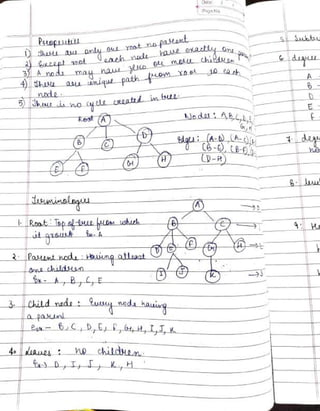 Date:
Page No.
Properties
1) There are only one root no parent
2) Except root each node have exactly one
3) A node may have zero or more children
4) There are unique path from root to each
node.
5) There is no cycle created in tree.
Root A
Nodes: A, B, C,
B C D
Edges: (A-B), (A-C)
(B-E), (B-F),
(D-H)
E F G H
Terminologies
A
1. Root: Top of tree from which
it
Ex. A
B C
2. Parent node: Having atleast
one children
Ex- A, B, C, E
D E F G H
I J K
3. Child node: Every node having
a parent
Ex - B, C, D, E, F, G, H, I, J, K
4. Leaves: no children.
Ex-> D, I, J, K, H
5.
6. degree
A
B
D
E
F
7.
no
8.
9.